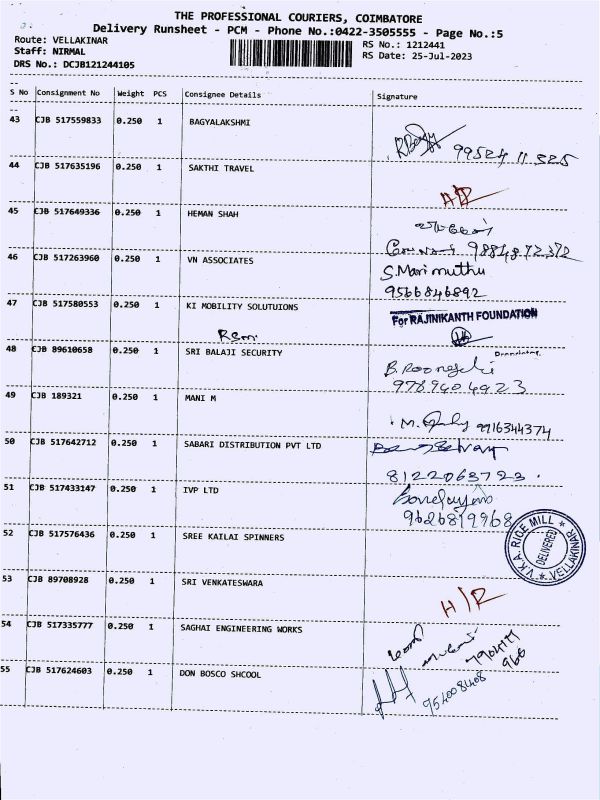 THE PROFESSIONAL COURIERS, COIMBATORE
Delivery Runsheet - PCM - Phone No.:0422-3505555 - Page No.:5
Route: VELLAKINAR RS No.: 1212441
Staff: NIRMAL RS Date: 25-Jul-2023
DRS No.: DCJB121244105
S No Consignment No Weight PCS Consignee Details Signature
43 CJB 517559833 0.250 1 BAGYALAKSHMI
99524 11 525
44 CJB 517635196 0.250 1 SAKTHI TRAVEL
45 CJB 517649336 0.250 1 HEMAN SHAH
9884872372
46 CJB 517263960 0.250 1 VN ASSOCIATES S.Marimuthu
9566846892
47 CJB 517580553 0.250 1 KI MOBILITY SOLUTUIONS For RAJINIKANTH FOUNDATION
48 CJB 89610658 0.250 1 SRI BALAJI SECURITY
9789404923
49 CJB 189321 0.250 1 MANI M
9916344374
50 CJB 517642712 0.250 1 SABARI DISTRIBUTION PVT LTD
8122063723.
51 CJB 517433147 0.250 1 IVP LTD
9626819968
52 CJB 517576436 0.250 1 SREE KAILAI SPINNERS V.K.A. RICE MILL ★ VELLAKINAR ★
DELIVERED
53 CJB 89708928 0.250 1 SRI VENKATESWARA
H/R
54 CJB 517335777 0.250 1 SAGHAI ENGINEERING WORKS
55 CJB 517624603 0.250 1 DON BOSCO SHCOOL
9540081408